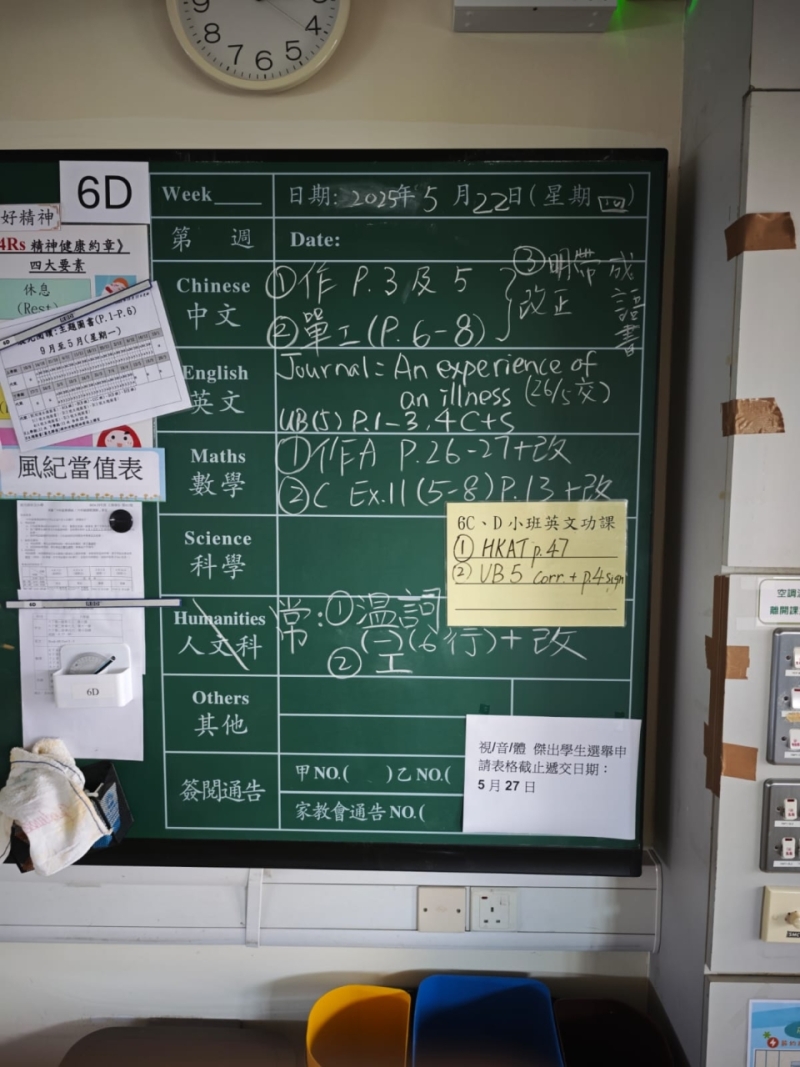 8 7 6 5 4
6D
Week
日期: 2025年5月22日(星期四)
第 週
Date:
好精神
4Rs 精神健康約章》
四大要素
休息
(Rest)
主題圖書(P.1-P.6)
9月至5月(星期一)
Chinese
中文
①作 P.3及5
②單工(P.6-8)
改正
③明帶成
語書
English
英文
Journal: An experience of
an illness (26/5交)
UB(5) P.1-3,4C+5
風紀當值表
Maths
數學
①作A P.26-27+改
②C Ex.11(5-8)P.13+改
Science
科學
6C、D小班英文功課
① HKAT p.47
② UB5 corr.+p.4 sign
Humanities
人文科
常:①溫詞
②工(一)(6行)+改
6D
Others
其他
簽閱通告
甲NO.( )乙NO.(
家教會通告NO.(
視/音/體 傑出學生選舉申
請表格截止遞交日期：
5月27日
空調
離開課